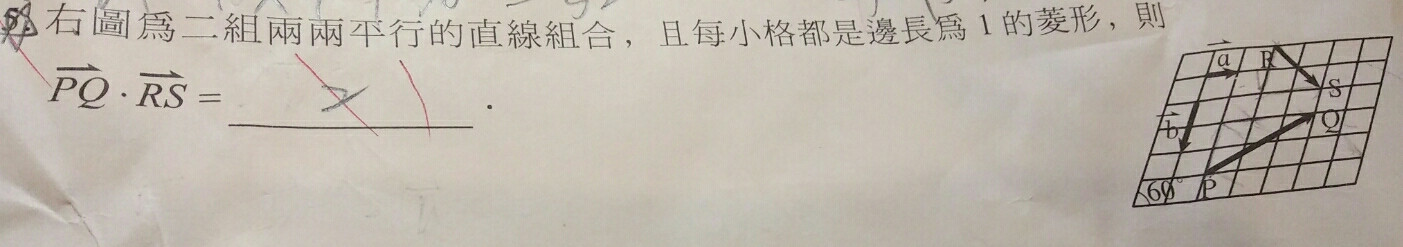 右圖爲二組兩兩平行的直線組合，且每小格都是邊長爲 1 的菱形，則
PQ · RS = 2 .
a R
S
b Q
60° P